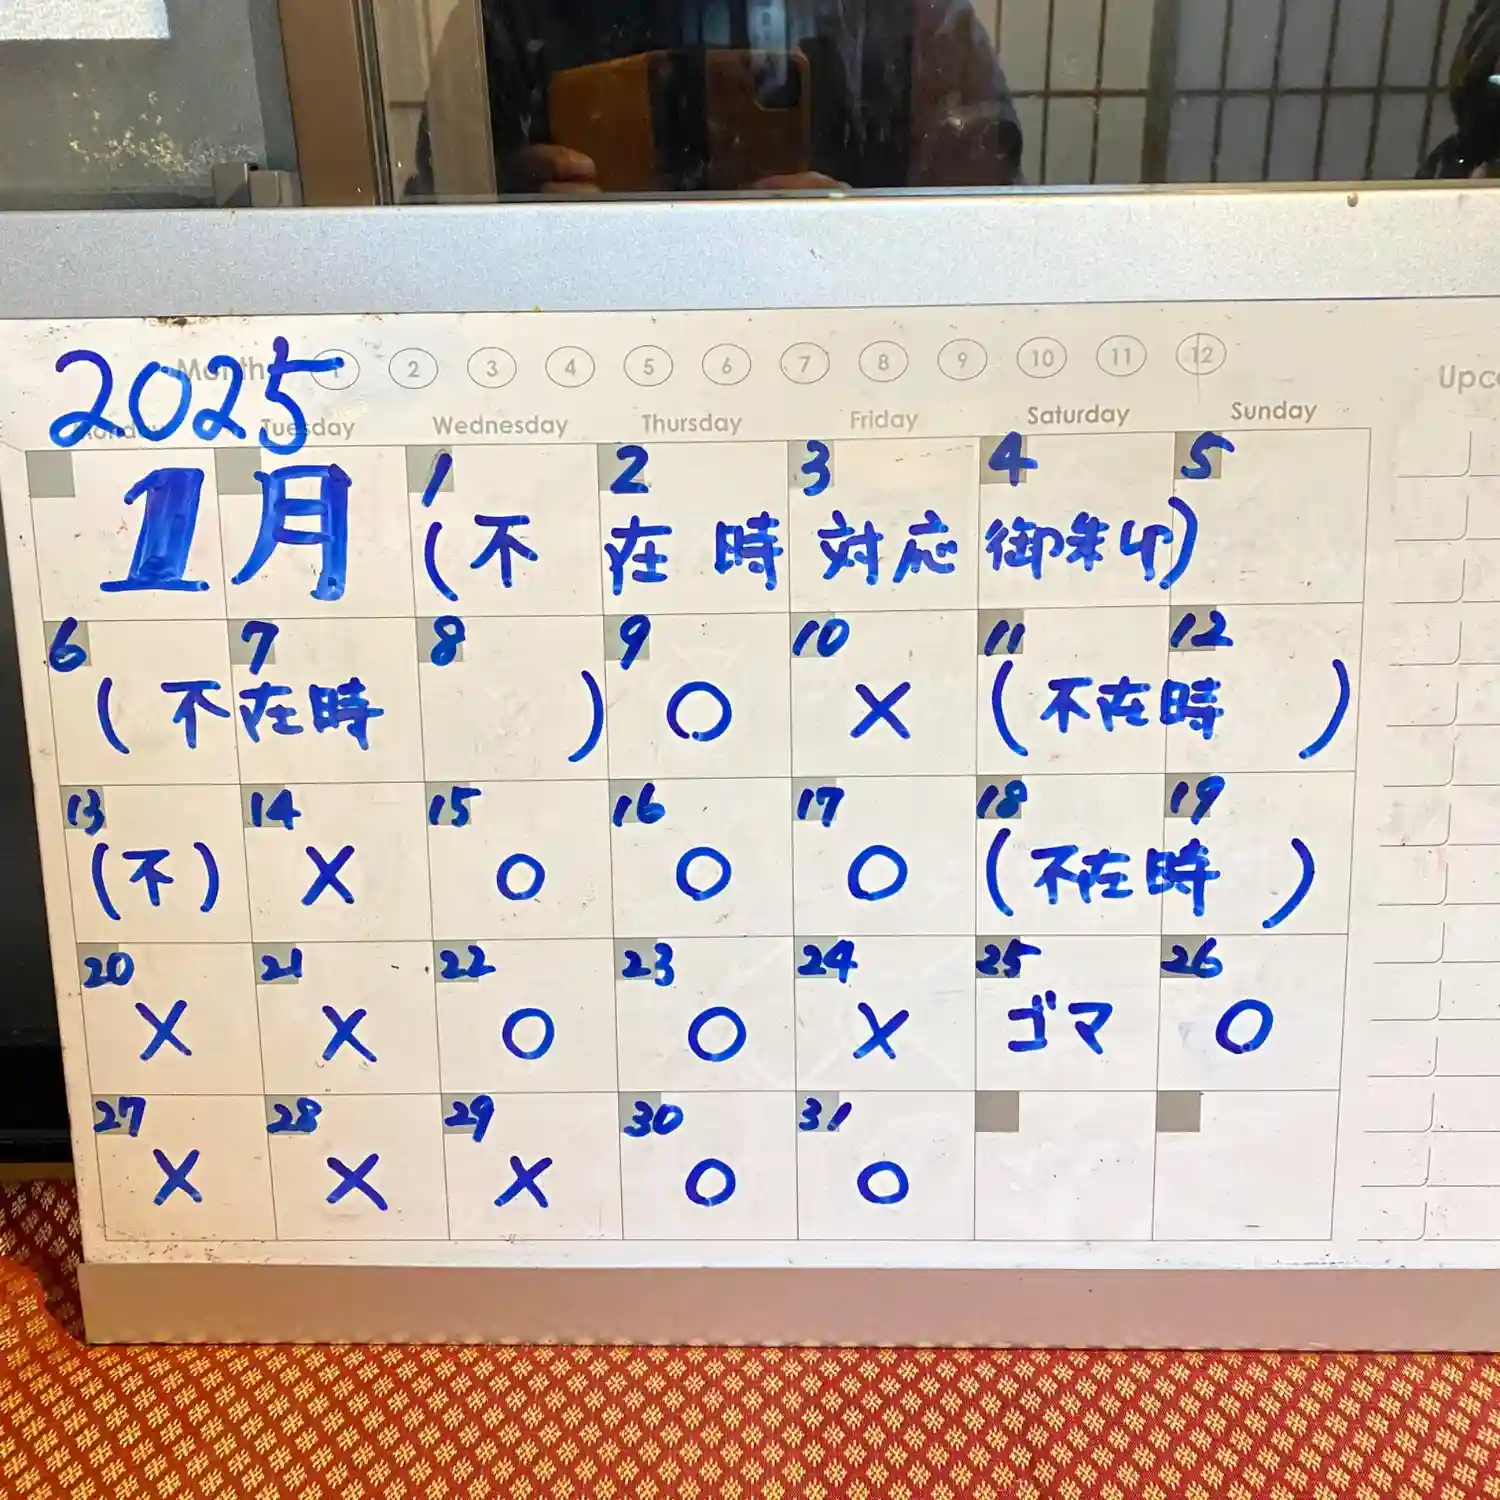 2025
Month 1 2 3 4 5 6 7 8 9 10 11 12
Upc
Monday Tuesday Wednesday Thursday Friday Saturday Sunday
1月 1 2 3 4 5
(不在時対応御朱印)
6 7 8 9 10 11 12
(不在時) ○ × (不在時)
13 14 15 16 17 18 19
(不) × ○ ○ ○ (不在時)
20 21 22 23 24 25 26
× × ○ ○ × ゴマ ○
27 28 29 30 31
× × × ○ ○